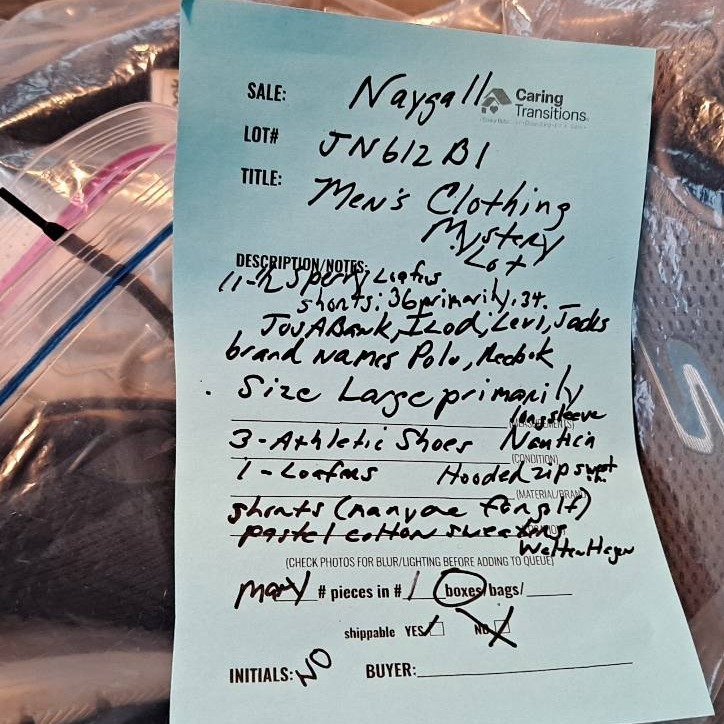 SALE: Naygall Caring Transitions
LOT# JN612B1
TITLE: Men's Clothing
Mystery
Lot
DESCRIPTION/NOTES:
11-12 Sperry Loafers
shorts: 36 primarily, 34.
Jos A Bank, IZod, Levi, Jacks
brand names Polo, Reebok
Size Large primarily
long sleeve
3-Athletic Shoes Nautica
(CONDITION)
1-Loafers Hooded zip sweat
(MATERIAL/BRAND)
shorts (many are for golf)
pastel cotton sweaters
Walter Hagen
(CHECK PHOTOS FOR BLUR/LIGHTING BEFORE ADDING TO QUEUE)
many # pieces in # 1 boxes/bags/
shippable YES NO
INITIALS: NO BUYER:
S